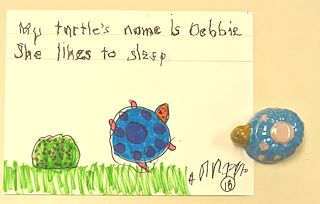 My turtle's name is Debbie
She likes to sleep